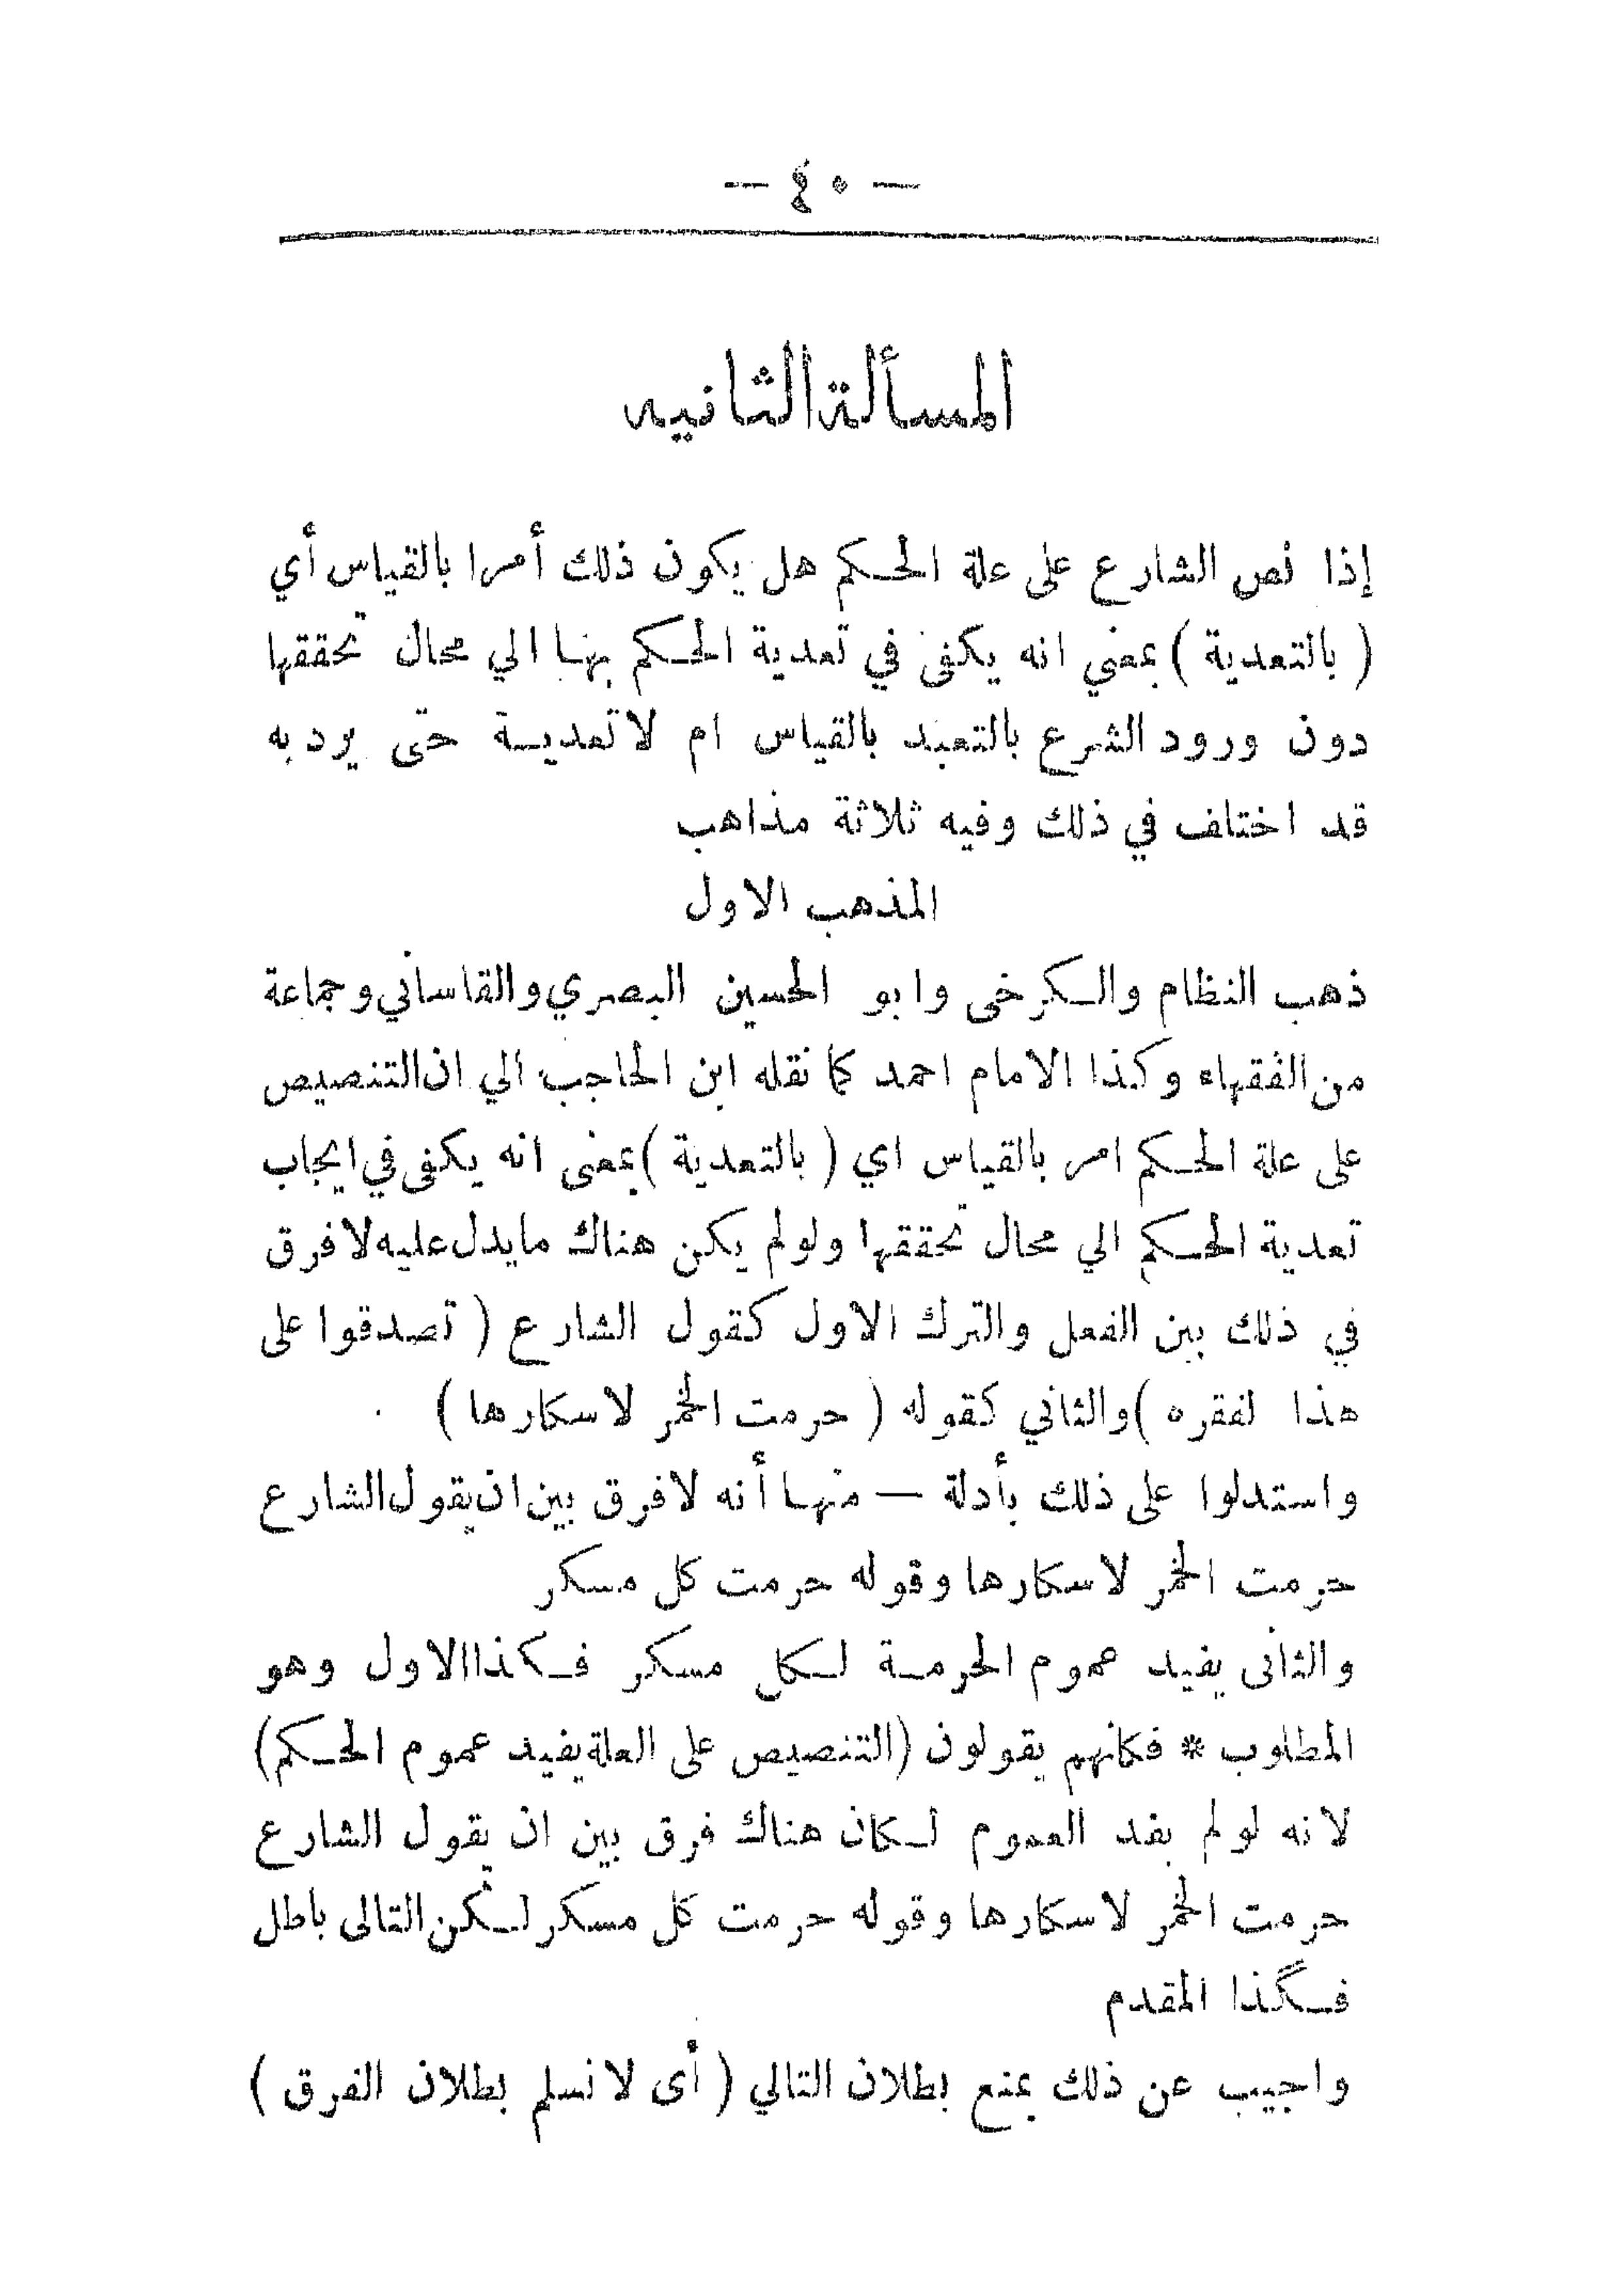 — ٤٠ —
المسألة الثانيه
إذا نص الشارع على علة الحكم هل يكون ذلك أمرا بالقياس أي
( بالتعدية ) بمعني انه يكفى في تعدية الحكم بها الي محال تحققها
دون ورود الشرع بالتعبد بالقياس ام لا تعدية حتى يرد به
قد اختلف في ذلك وفيه ثلاثة مذاهب
المذهب الاول
ذهب النظام والكرخى وابو الحسين البصري والقاساني وجماعة
من الفقهاء وكذا الامام احمد كما نقله ابن الحاجب الي ان التنصيص
على علة الحكم امر بالقياس اي ( بالتعدية ) بمعنى انه يكفى في ايجاب
تعدية الحكم الي محال تحققها ولو لم يكن هناك ما يدل عليه لا فرق
في ذلك بين الفعل والترك الاول كقول الشارع ( تصدقوا على
هذا لفقره ) والثاني كقوله ( حرمت الخمر لاسكارها )
واستدلوا على ذلك بأدلة — منها أنه لا فرق بين ان يقول الشارع
حرمت الخمر لاسكارها وقوله حرمت كل مسكر
والثانى يفيد عموم الحرمة لكل مسكر فكذا الاول وهو
المطلوب * فكانهم يقولون (التنصيص على العلة يفيد عموم الحكم)
لانه لو لم يفد العموم لكان هناك فرق بين ان يقول الشارع
حرمت الخمر لاسكارها وقوله حرمت كل مسكر لكن التالى باطل
فكذا المقدم
واجيب عن ذلك بمنع بطلان التالي ( أى لا نسلم بطلان الفرق )